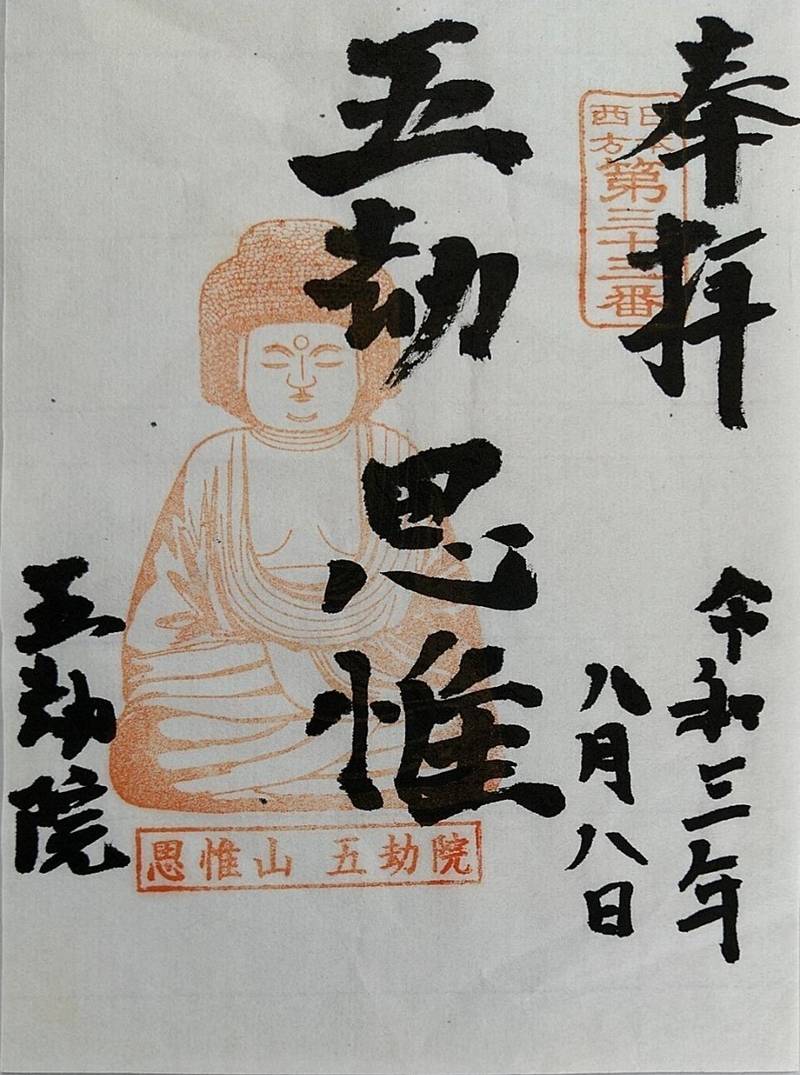 奉拝
西国
方
第三十三番
令和三年
八月八日
五劫思惟
五劫院
思惟山 五劫院